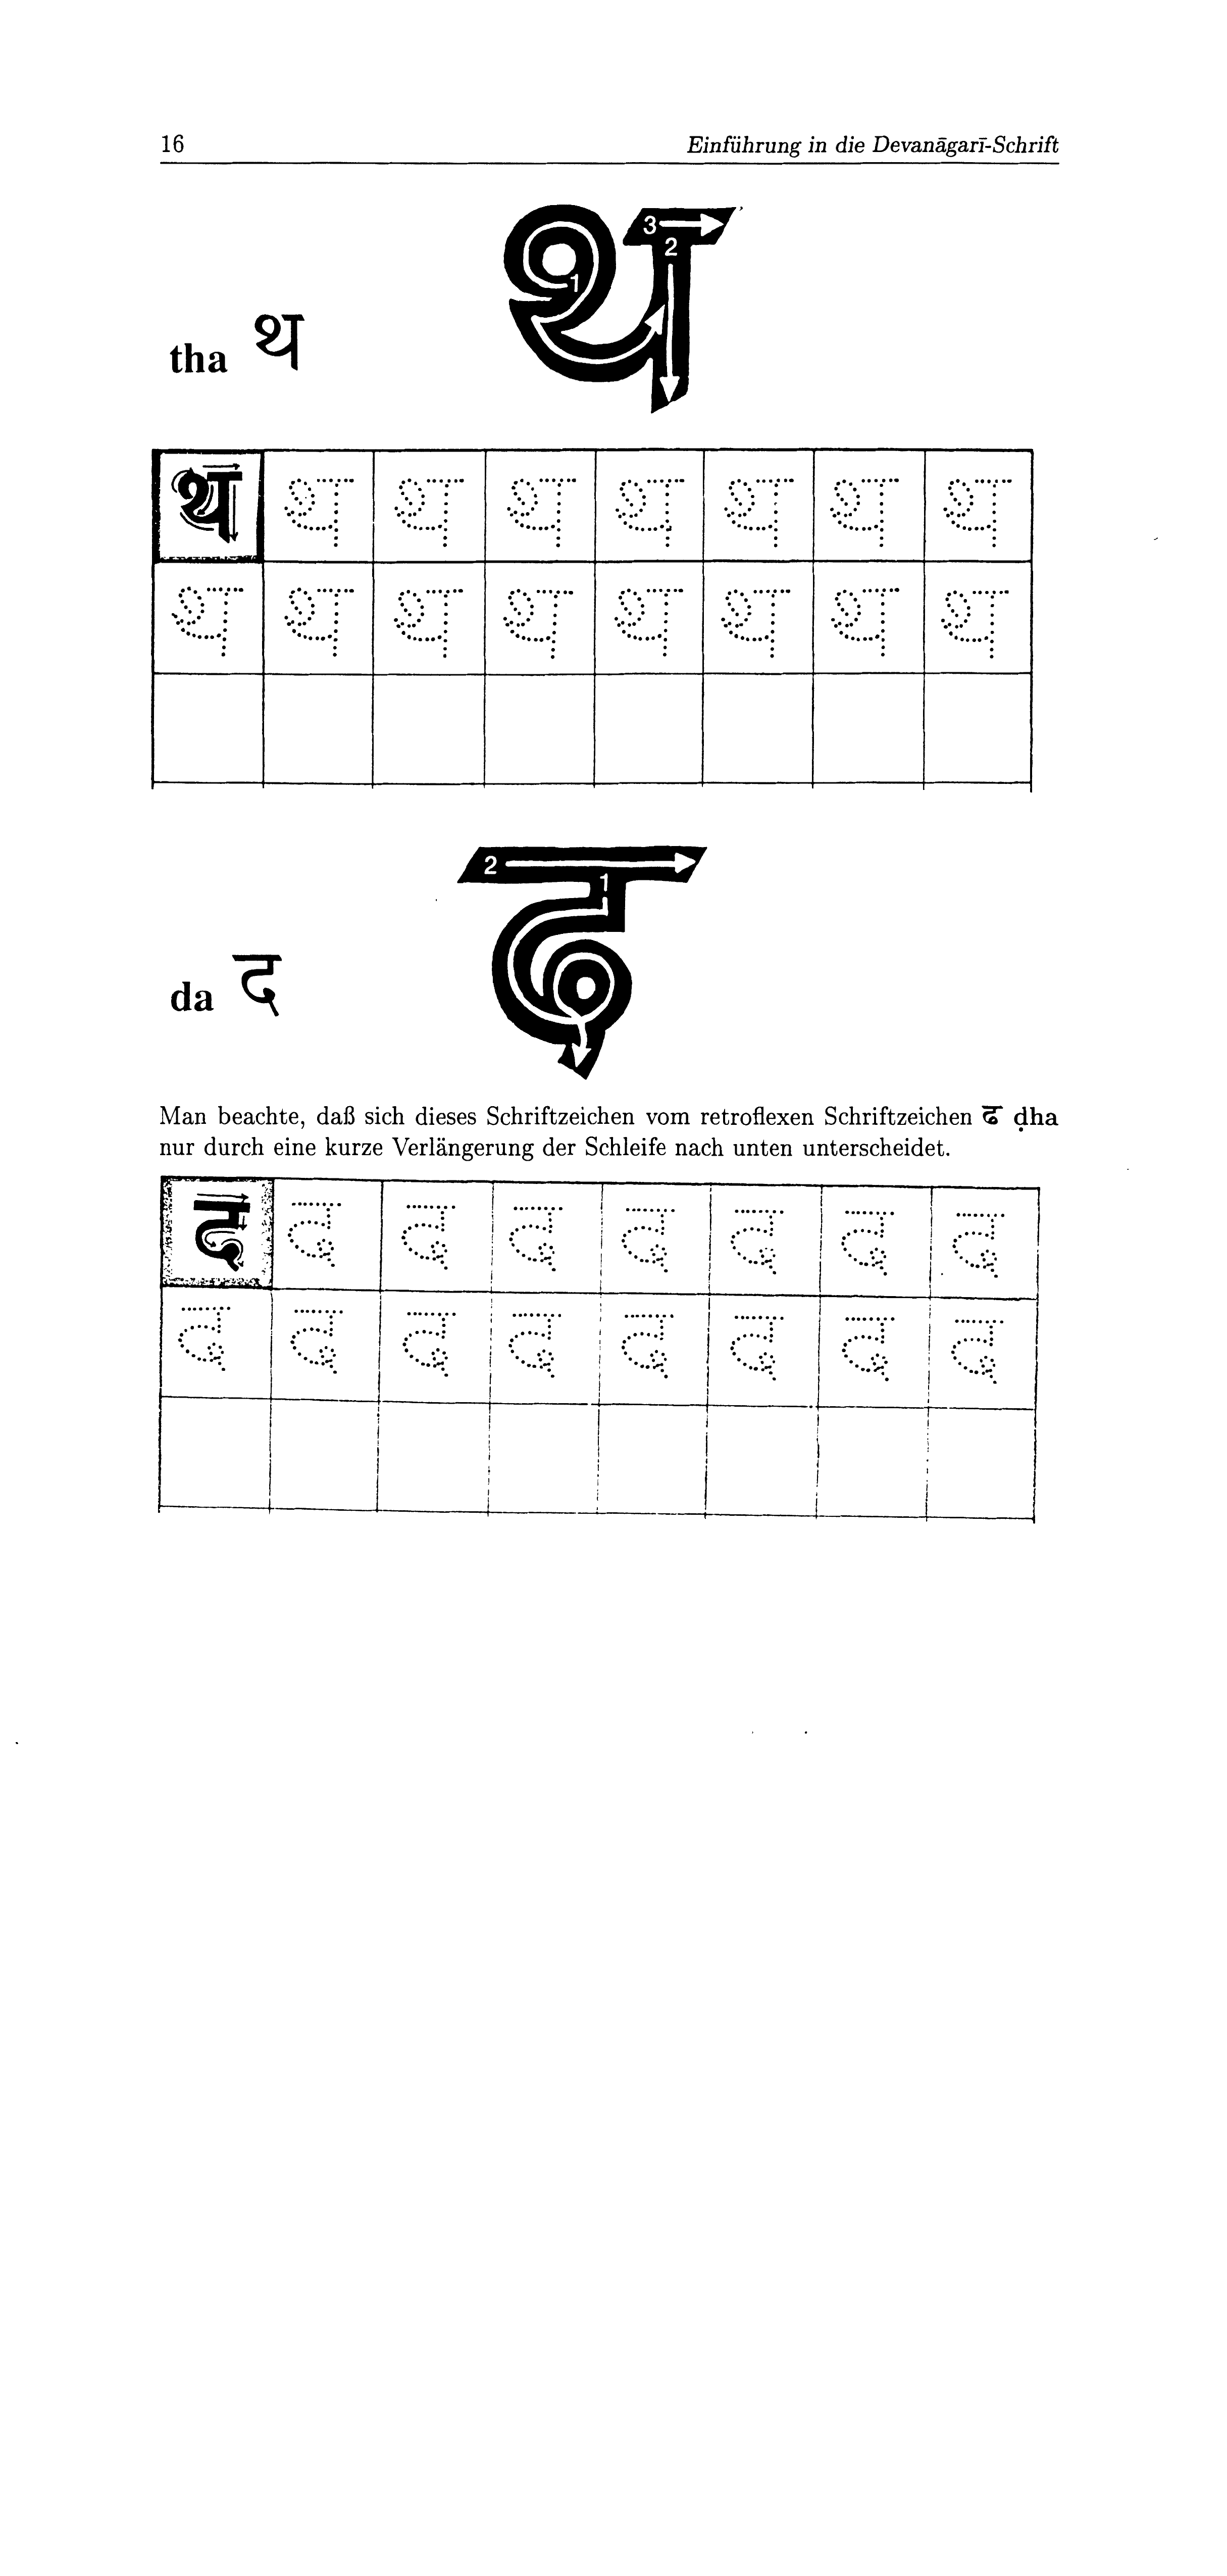 16 Einführung in die Devanāgarī-Schrift
3
2
1
tha थ
थ थ थ थ थ थ थ थ
थ थ थ थ थ थ थ थ
2
1
da द
Man beachte, daß sich dieses Schriftzeichen vom retroflexen Schriftzeichen ढ ḍha
nur durch eine kurze Verlängerung der Schleife nach unten unterscheidet.
द द द द द द द द
द द द द द द द द